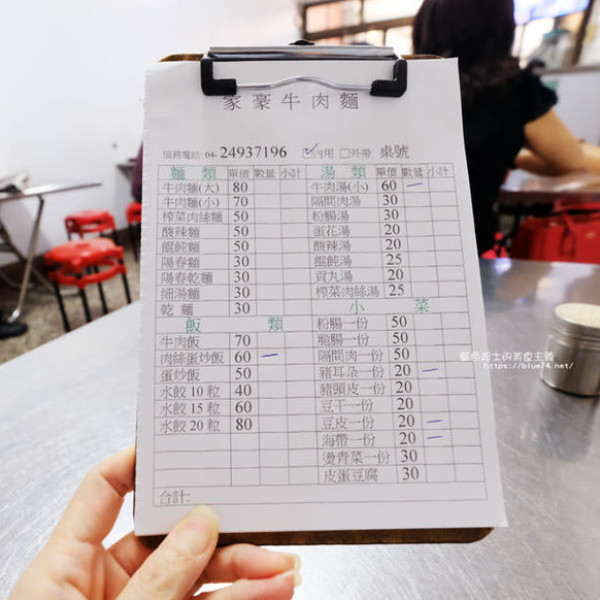 家豪牛肉麵
服務電話: 04-24937196 ☑內用 □外帶 桌號
麵類 單價 數量 小計 湯類 單價 數量 小計
牛肉麵(大) 80 牛肉湯(小) 60 一
牛肉麵(小) 70 隔間肉湯 30
榨菜肉絲麵 50 粉腸湯 30
酸辣麵 50 蛋花湯 20
餛飩麵 50 酸辣湯 20
陽春麵 30 餛飩湯 25
陽春乾麵 30 貢丸湯 20
細湯麵 30 榨菜肉絲湯 25
乾麵 30 小菜
飯類 粉腸一份 50
牛肉飯 70 脆腸一份 50
肉絲蛋炒飯 60 一 隔間肉一份 50
蛋炒飯 50 豬耳朵一份 20 一
水餃10粒 40 豬頭皮一份 20
水餃15粒 60 豆干一份 20
水餃20粒 80 豆皮一份 20 一
海帶一份 20 一
燙青菜一份 30
皮蛋豆腐 30
合計:
藍色起士的美食主義
https://blue74.net/